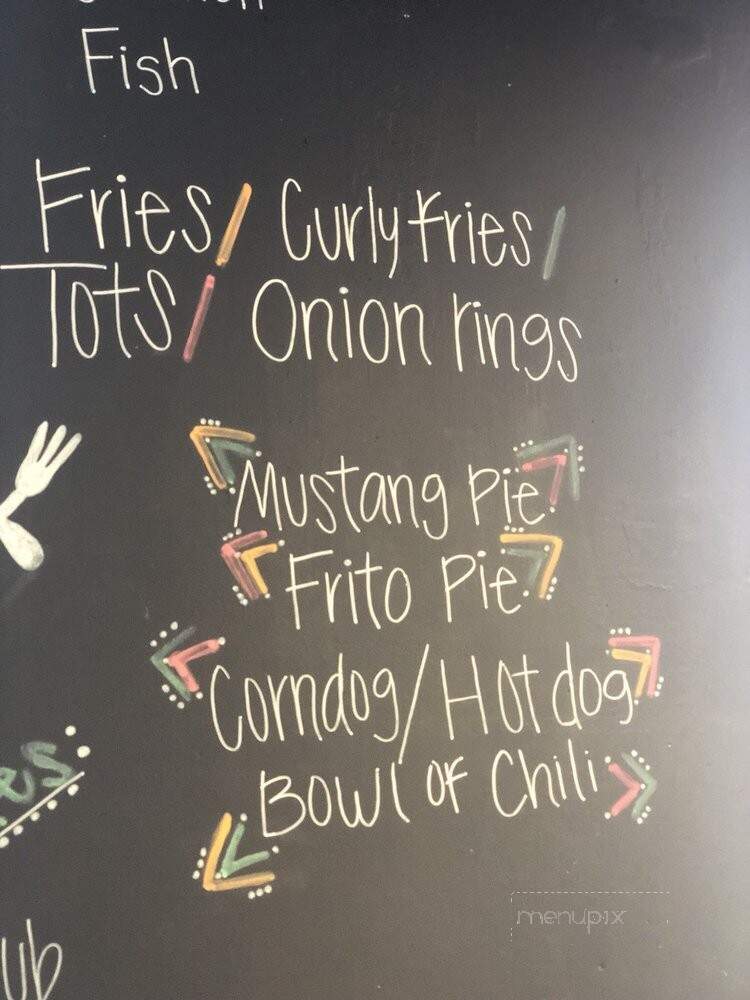 Fish
Fries/ Curly Fries/
Tots/ Onion rings
Mustang Pie
Frito Pie
Corndog/Hot dog
Bowl of Chili
menupix